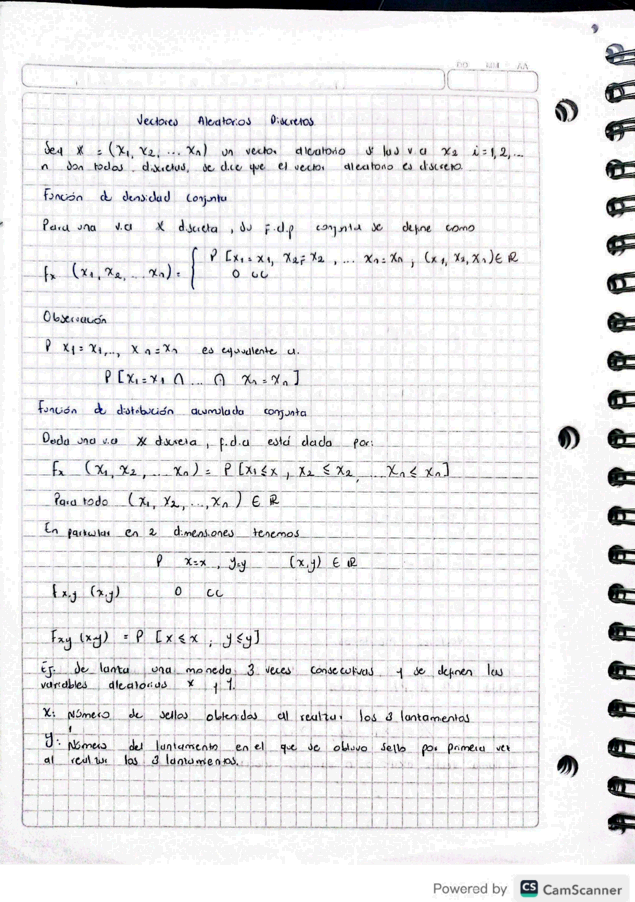 DD MM AA
Vectores Aleatorios Discretos
Sea X = (x1, x2, ... xn) un vector aleatorio si las v.a x2 i=1,2,...
n son todas discretas, se dice que el vector aleatorio es discreto.
Función de densidad conjunta
Para una v.a X discreta, su f.d.p conjunta se define como
fx (x1, x2, ... xn) = { P [x1=x1, x2=x2, ... xn=xn, (x1, x2, xn) ∈ R
0 cc
Observación
P x1=x1,..., xn=xn es equivalente a.
P [x1=x1 ∩ ... ∩ xn=xn]
Función de distribución acumulada conjunta
Dada una v.a X discreta, f.d.a está dada por:
Fx (x1, x2, ... xn) = P [x1≤x, x2≤x2, ... xn≤xn]
Para todo (x1, x2, ..., xn) ∈ R
En particular en 2 dimensiones tenemos
P x=x, y=y (x,y) ∈ R
fx,y (x,y) 0 cc
Fxy (x,y) = P [x≤x, y≤y]
Ej: se lanza una moneda 3 veces consecutivas y se definen las
variables aleatorias x y Y.
X: Número de sellos obtenidos al realizar los 3 lanzamientos
Y: Número del lanzamiento en el que se obtuvo sello por primera vez
al realizar los 3 lanzamientos.
Powered by CS CamScanner